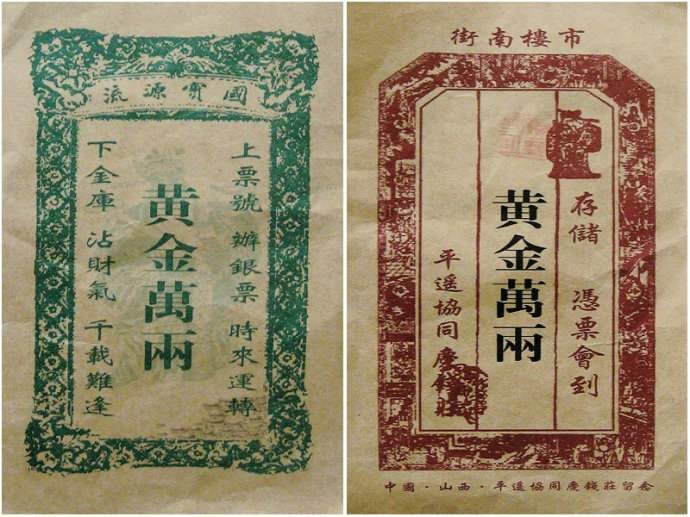 國寶源流
上票號 辦銀票 時來運轉
黄金萬兩
下金庫 沾財氣 千載難逢
市樓南街
存儲 憑票會到
黄金萬兩
平遙協同慶錢莊
中國·山西·平遙協同慶錢莊留念